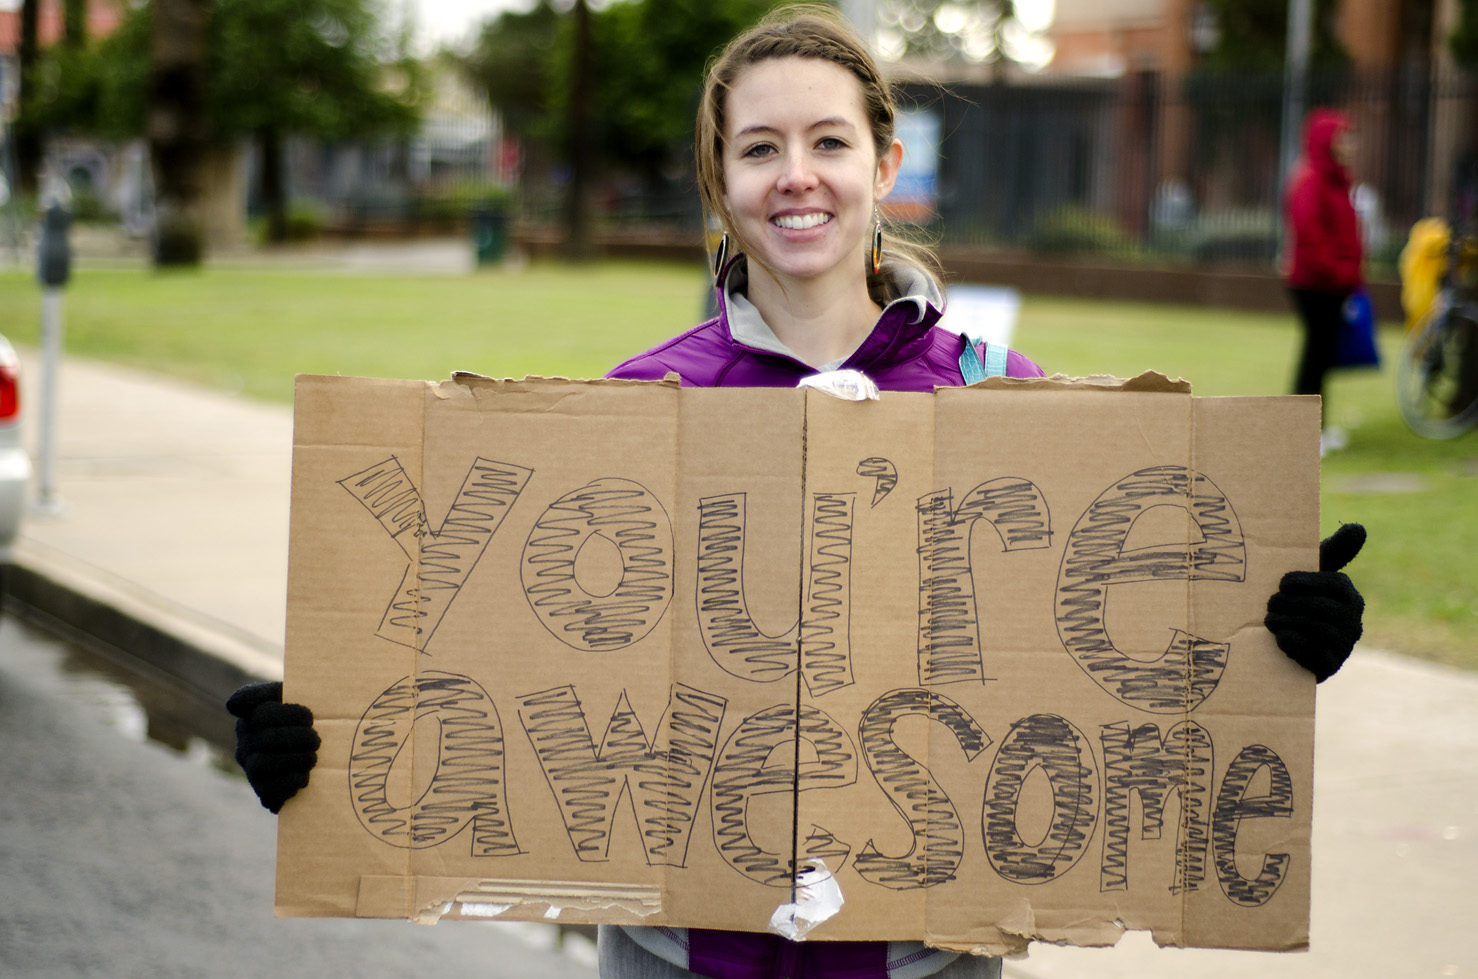 You're
awesome